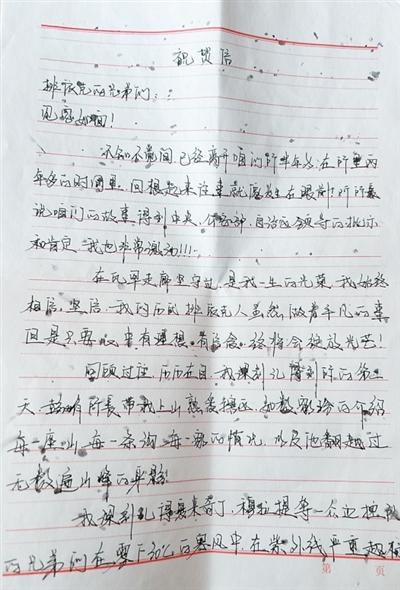 祝贺信
排依克的兄弟们:
见信如面!
不知不觉间,已经离开咱们所半年多,在所里两
年多的时间里,回想起来往事就像发生在眼前!所所长
说咱们的故事,得到中央、公安部、自治区领导的批示
和肯定,我也非常激动!!!
在瓦罕走廊坚守过,是我一生的光荣,我始终
相信,坚信,我们的排依克人虽然做着平凡的事
但是只要心中有理想,有信念,终将会绽放光芒!
回顾过往,历历在目,我深刻记得到所的第一
天,所长带我上山熟悉辖区,如数家珍的介绍
每一座山、每一条沟、每一家的情况,以及他翻越过
无数遍山峰的身影!
我深刻记得
的兄弟们在零下30℃的寒风中,在紫外线严重超标
第 页